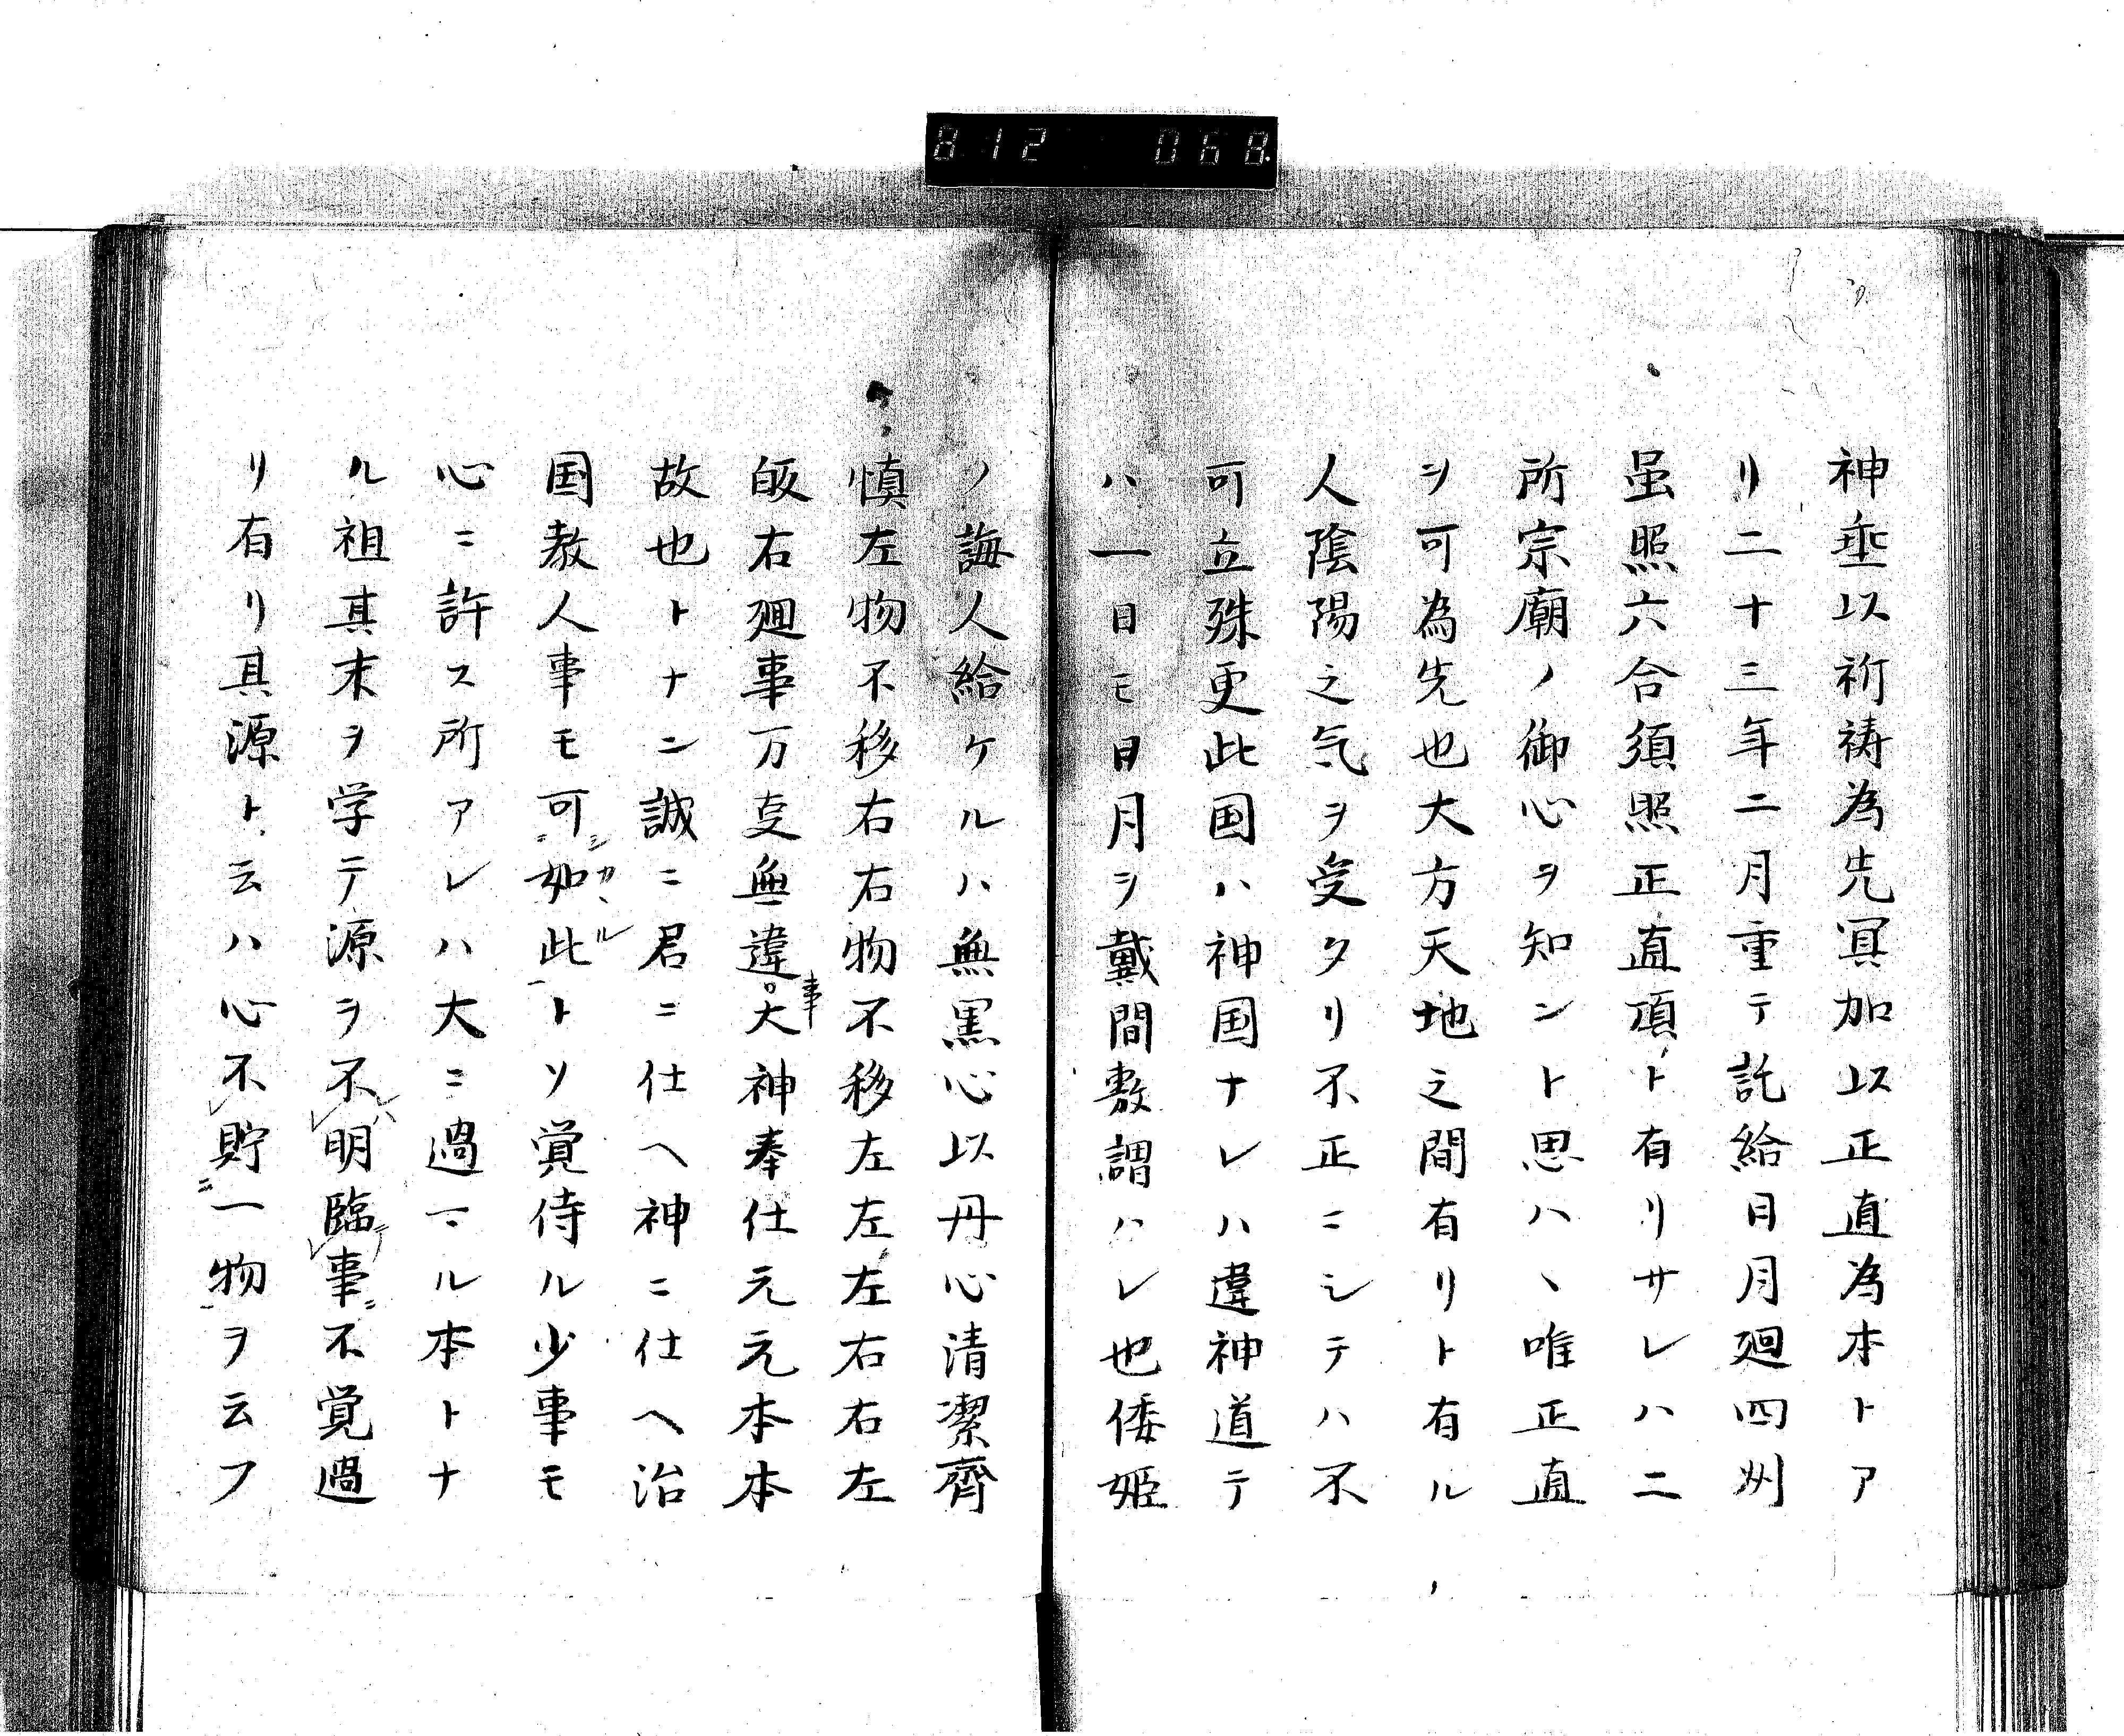 812 068
神垂以祈祷為先冥加以正直為本トア
リ二十三年二月重テ託給日月廻四州
虽照六合須照正直頂ト有リサレハ二
所宗廟ノ御心ヲ知ント思ハヽ唯正直
ヲ可為先也大方天地之間有リト有ル
人陰陽之气ヲ受タリ不正ニシテハ不
可立殊更此国ハ神国ナレハ違神道テ
ハ一日モ日月ヲ戴間敷謂ハレ也倭姫
ノ誨人給ケルハ無黒心以丹心清潔齊
慎左物不移右右物不移左左左右右左
皈右廻事万支無違事大神奉仕元元本本
故也トナン誠ニ君ニ仕ヘ神ニ仕ヘ治
国教人事モ可如此トソ覚侍ル少事モ
心ニ許ス所アレハ大ニ過マル本トナ
ル祖其末ヲ学テ源ヲ不明臨事不覚過
リ有リ其源ト云ハ心不貯一物ヲ云フ